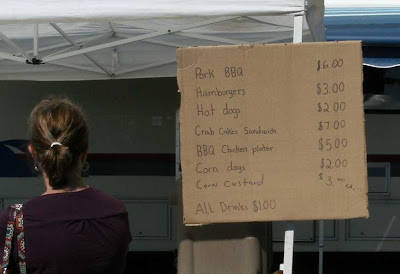 Pork BBQ $6.00
Hamburgers $3.00
Hot dogs $2.00
Crab Cakes Sandwich $7.00
BBQ Chicken plater $5.00
Corn dogs $2.00
Corn Custard $3.00 ea.
All Drinks $1.00